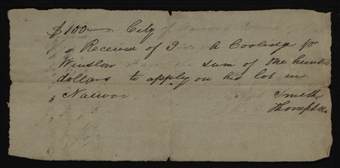 $100 City of
Received of A Coolidge for
Winslow sum of one hund
dollars to apply on his lot in
Nauvoo Smith
Thompson